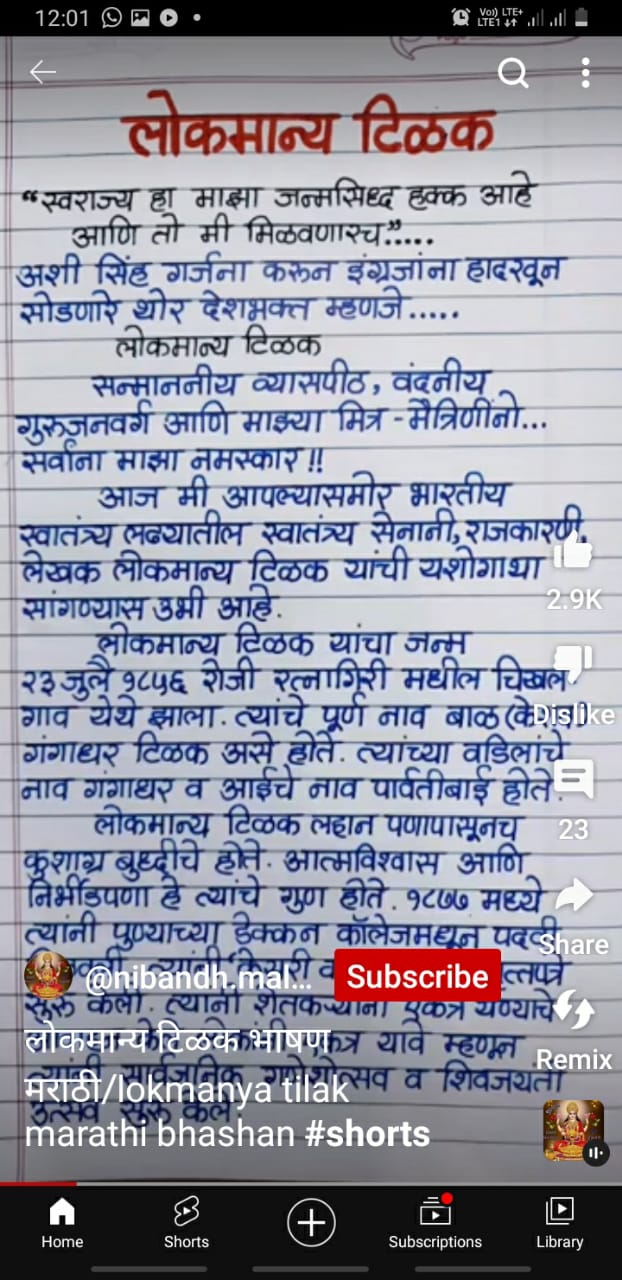 12:01
Vo) LTE+
LTE1
लोकमान्य टिळक
"स्वराज्य हा माझा जन्मसिध्द हक्क आहे
आणि तो मी मिळवणारच".....
अशी सिंह गर्जना करून इंग्रजांना हादरवून
सोडणारे थोर देशभक्त म्हणजे.....
लोकमान्य टिळक
सन्माननीय व्यासपीठ, वंदनीय
गुरुजनवर्ग आणि माझ्या मित्र-मैत्रिणींनो...
सर्वांना माझा नमस्कार!!
आज मी आपल्यासमोर भारतीय
स्वातंत्र्य लढ्यातील स्वातंत्र्य सेनानी, राजकारणी,
लेखक लोकमान्य टिळक यांची यशोगाथा
सांगण्यास उभी आहे.
2.9K
लोकमान्य टिळक यांचा जन्म
२३ जुलै १८५६ रोजी रत्नागिरी मधील चिखल
गाव येथे झाला. त्यांचे पूर्ण नाव बाळ
Dislike
गंगाधर टिळक असे होते. त्यांच्या वडिलांचे
नाव गंगाधर व आईचे नाव पार्वतीबाई होते.
लोकमान्य टिळक लहान पणापासूनच
23
कुशाग्र बुध्दीचे होते. आत्मविश्वास आणि
निर्भीडपणा हे त्यांचे गुण होते. १८७७ मध्ये
त्यांनी पुण्याच्या डेक्कन कॉलेजमधून पदवी
Share
@nibandh.mal...
Subscribe
सुरू केली. त्यांनी शेतकऱ्यांना एकत्र येण्याचे
यावे म्हणून
त्यांनी सार्वजनिक गणेशोत्सव व शिवजयंती
उत्सव सुरू केले.
Remix
लोकमान्य टिळक भाषण
मराठी/lokmanya tilak
marathi bhashan #shorts
Home
Shorts
Subscriptions
Library